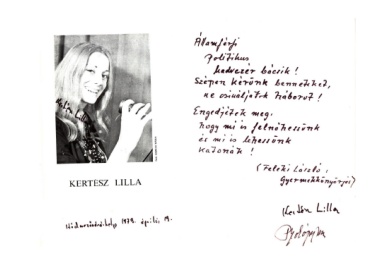 Kertész Lilla
KERTÉSZ LILLA
1979. április 19.
Államférfi
politikus
hadvezér bácsik!
Szépen kérünk benneteket,
ne csináljatok háborút!
Engedjétek meg,
hogy mi is felnőhessünk
és mi is lehessünk
katonák!
(Feleki László:
Gyermekkönyörgés)
Kertész Lilla